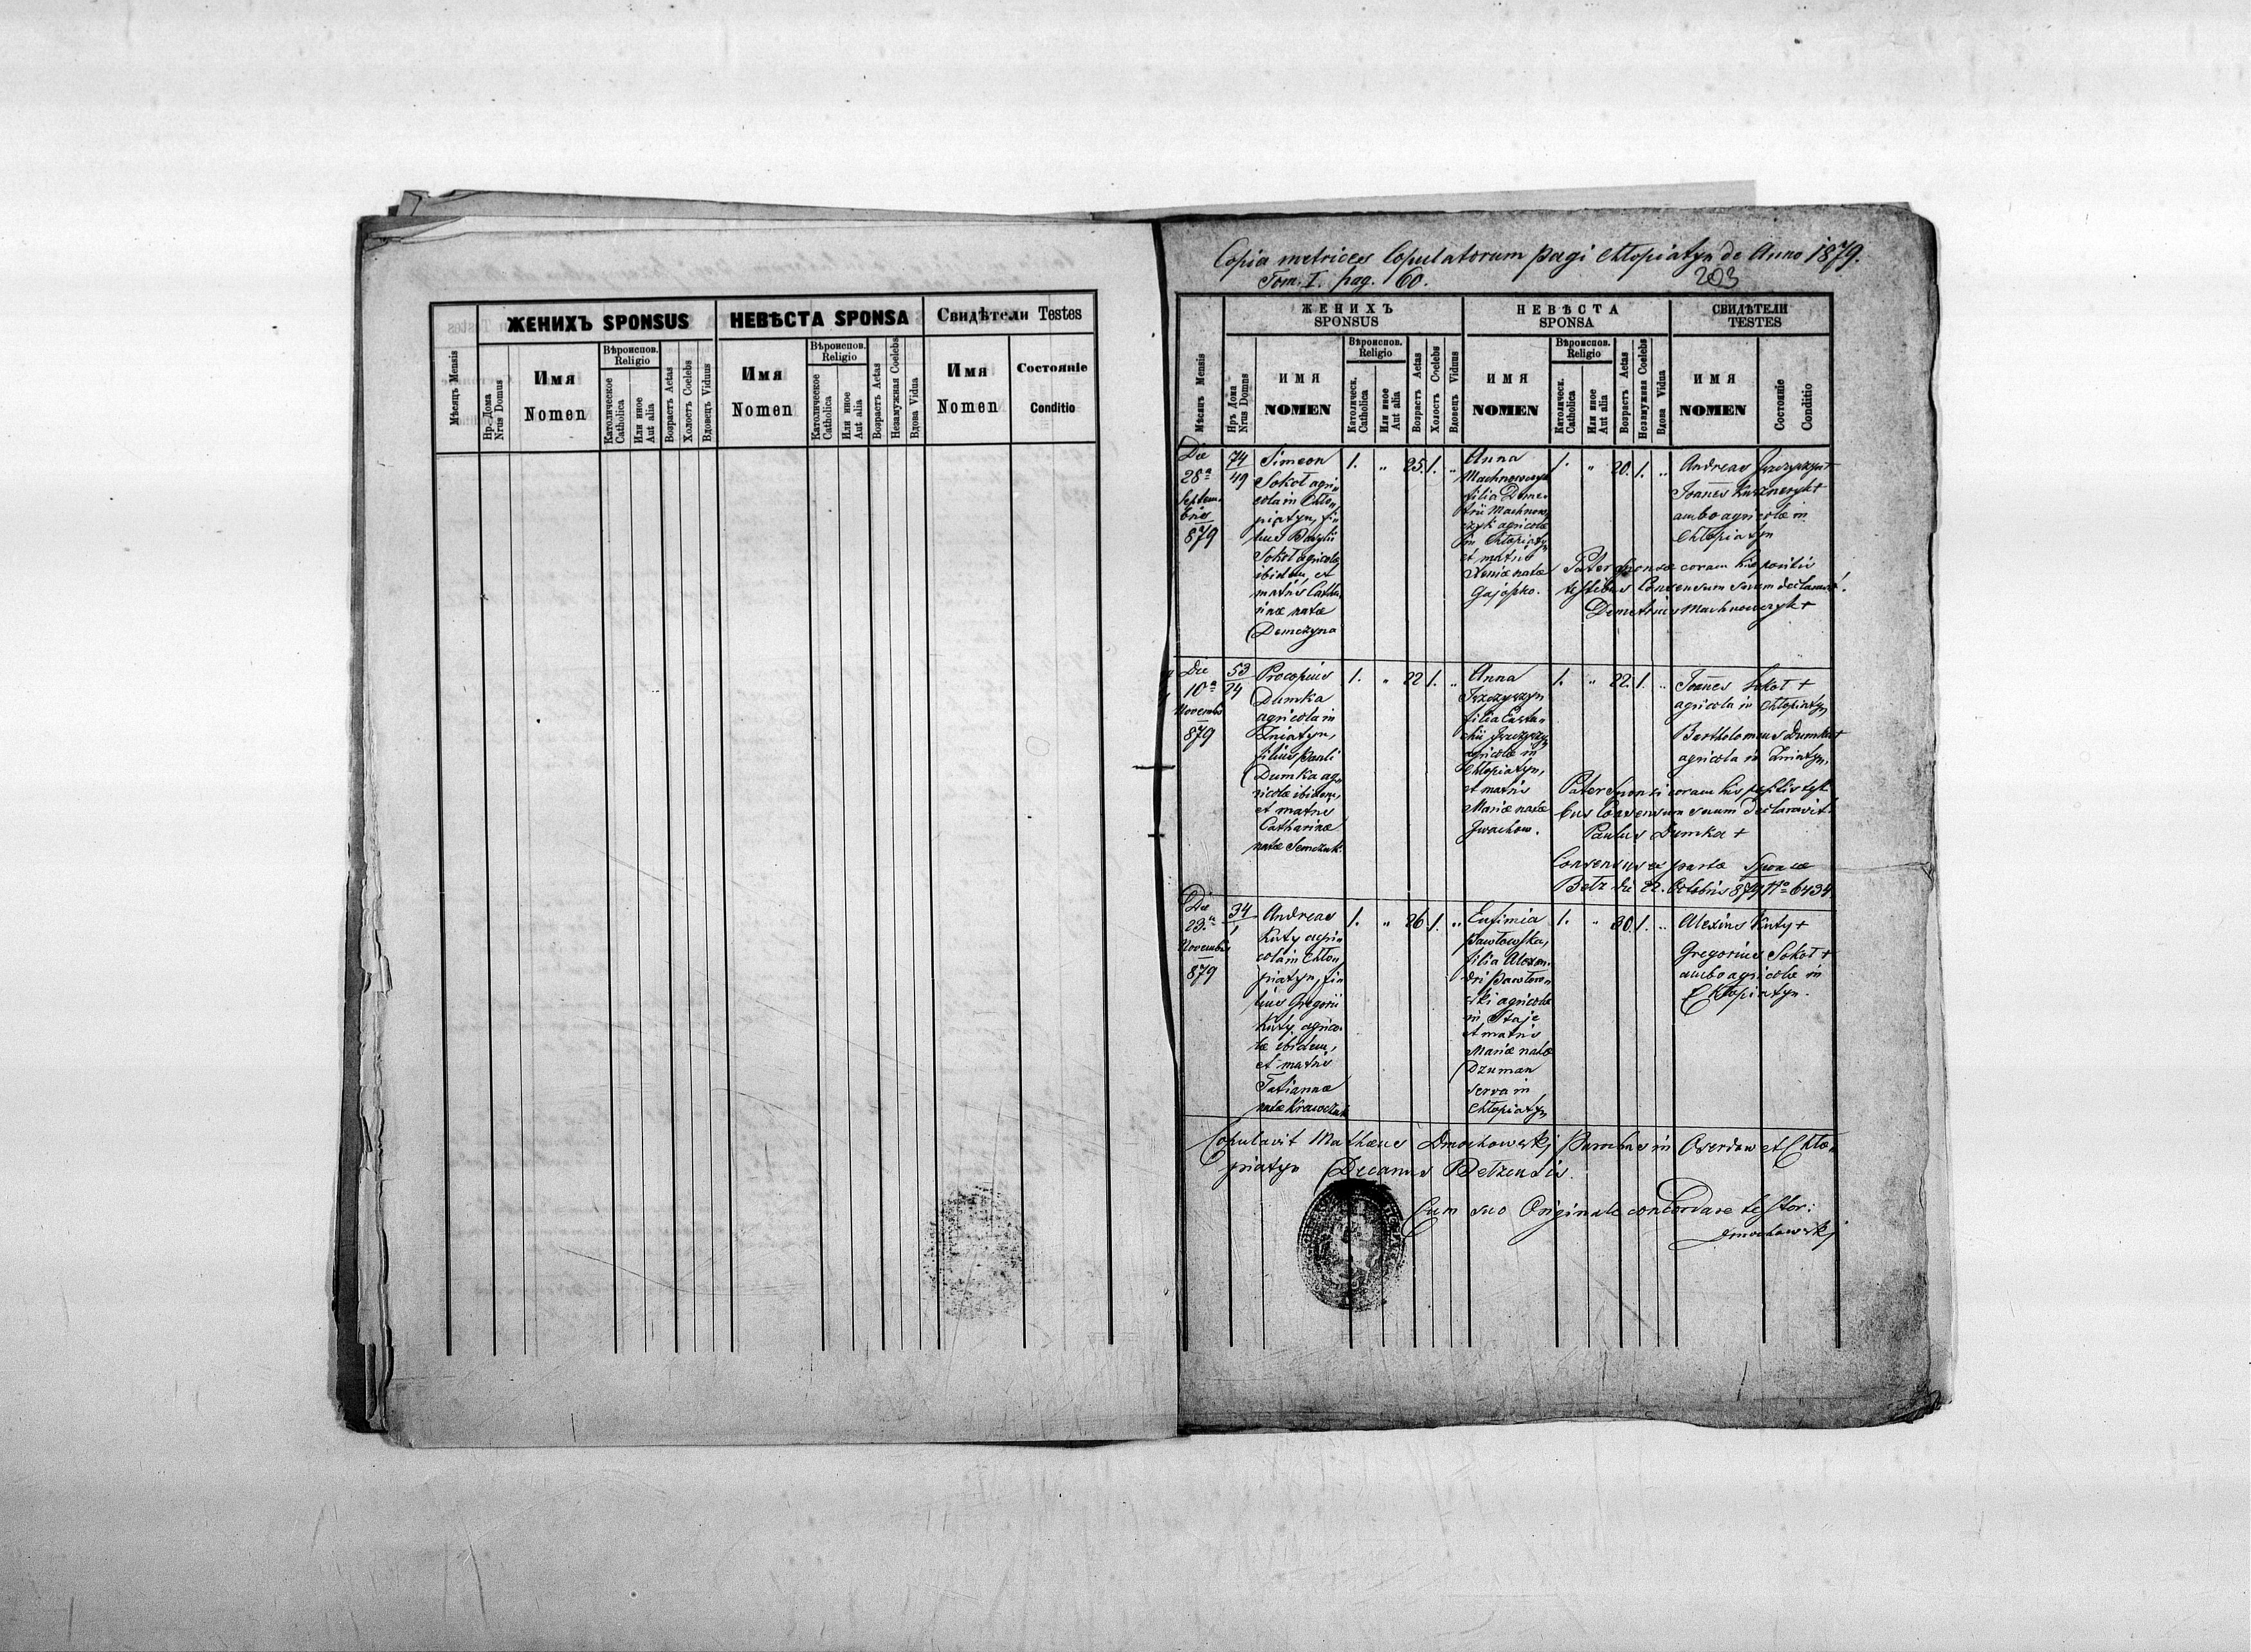 ЖЕНИХЪ SPONSUS
НЕВѢСТА SPONSA
Свидѣтели Testes
Мѣсяцъ Mensis
Нр. Дома
Nrus Domus
Имя
Nomen
Вѣроиспов.
Religio
Католическое
Catholica
Или иное
Aut alia
Возрастъ Aetas
Холостъ Coelebs
Вдовецъ Viduus
Имя
Nomen
Вѣроиспов.
Religio
Католическое
Catholica
Или иное
Aut alia
Возрастъ Aetas
Незамужная Coelebs
Вдова Vidua
Имя
Nomen
Состояніе
Conditio
Copia metrices Copulatorum pagi Chłopiatyn de Anno 1879.
Tom. I. pag. 60.
203
ЖЕНИХЪ
SPONSUS
НЕВѢСТА
SPONSA
СВИДѢТЕЛИ
TESTES
Мѣсяцъ Mensis
Нръ Дома
Nrus Domus
ИМЯ
NOMEN
Вѣроиспов.
Religio
Католическ.
Catholica
Или иное
Aut alia
Возрастъ Aetas
Холостъ Coelebs
Вдовецъ Viduus
ИМЯ
NOMEN
Вѣроиспов.
Religio
Католическ.
Catholica
Или иное
Aut alia
Возрастъ Aetas
Незамужная Coelebs
Вдова Vidua
ИМЯ
NOMEN
Состояніе
Conditio
Die
28ª
Septem
bris
879
74
49
Simeon
Sokoł agri
cola in Chło
piatyn, fi
lius Basylii
Sokoł agricolæ
ibidem, et
matris Catha
rinæ natæ
Demczyna
1. " 25. 1. "
Anna
Machnowczyk
filia Deme
trii Machnow
czyk agricolæ
in Chłopiatyn
et matris
Xeniæ natæ
Gajoszko.
1. " 20. 1. "
Andreas +
Joannes Kuszneryk +
ambo agricolæ in
Chłopiatyn
Pater sponsæ coram his positis
testibus Consensum suum declaravit!
Demetrius Machnowczyk +
Die
10ª
Novembris
879
53
24
Procopius
Dumka
agricola in
Żniatyn,
filius Pauli
Dumka ag
ricolæ ibidem,
et matris
Catharinæ
natæ Semczuk.
1. " 22 1. "
Anna
filia Eusta
chii
agricolæ in
Chłopiatyn,
et matris
Mariæ natæ
Iwachow.
1. " 22. 1. "
Joannes Sokoł +
agricola in Chłopiatyn
Bartholomeus Dumka +
agricola in Żniatyn.
Pater Sponsi coram his testi
bus Consensum suum declaravit!
Paulus Dumka +
Consensus ex parte Sponsæ
Betz die 22. Octobris 879 No 6434
Die
23ª
Novembris
879
34
1
Andreas
Kuty agri
cola in Chło
piatyn, fi
lius Gregorii
Kuty agrico
læ ibidem,
et matris
Tatiannæ
natæ Krawczuk
1. " 26. 1. "
Eufimia
Pawłowska,
filia Alexan
dri Pawłow
ski agricolæ
in Staje
et matris
Mariæ natæ
Dzuman
serva in
Chłopiatyn
1. " 30. 1. "
Alexius Kuty +
Gregorius Sokoł +
ambo agricolæ in
Chłopiatyn.
Copulavit Mathæus Dmochowskj Parochus in Oserdow et Chło
piatyn Decanus Betzensis.
Cum suo Originale concordare testor:
Dmochowskj